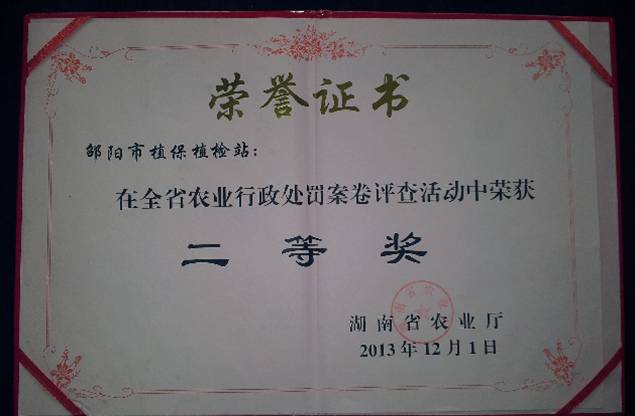 荣誉证书
邵阳市植保植检站：
在全省农业行政处罚案卷评查活动中荣获
二等奖
湖南省农业厅
2013年12月1日